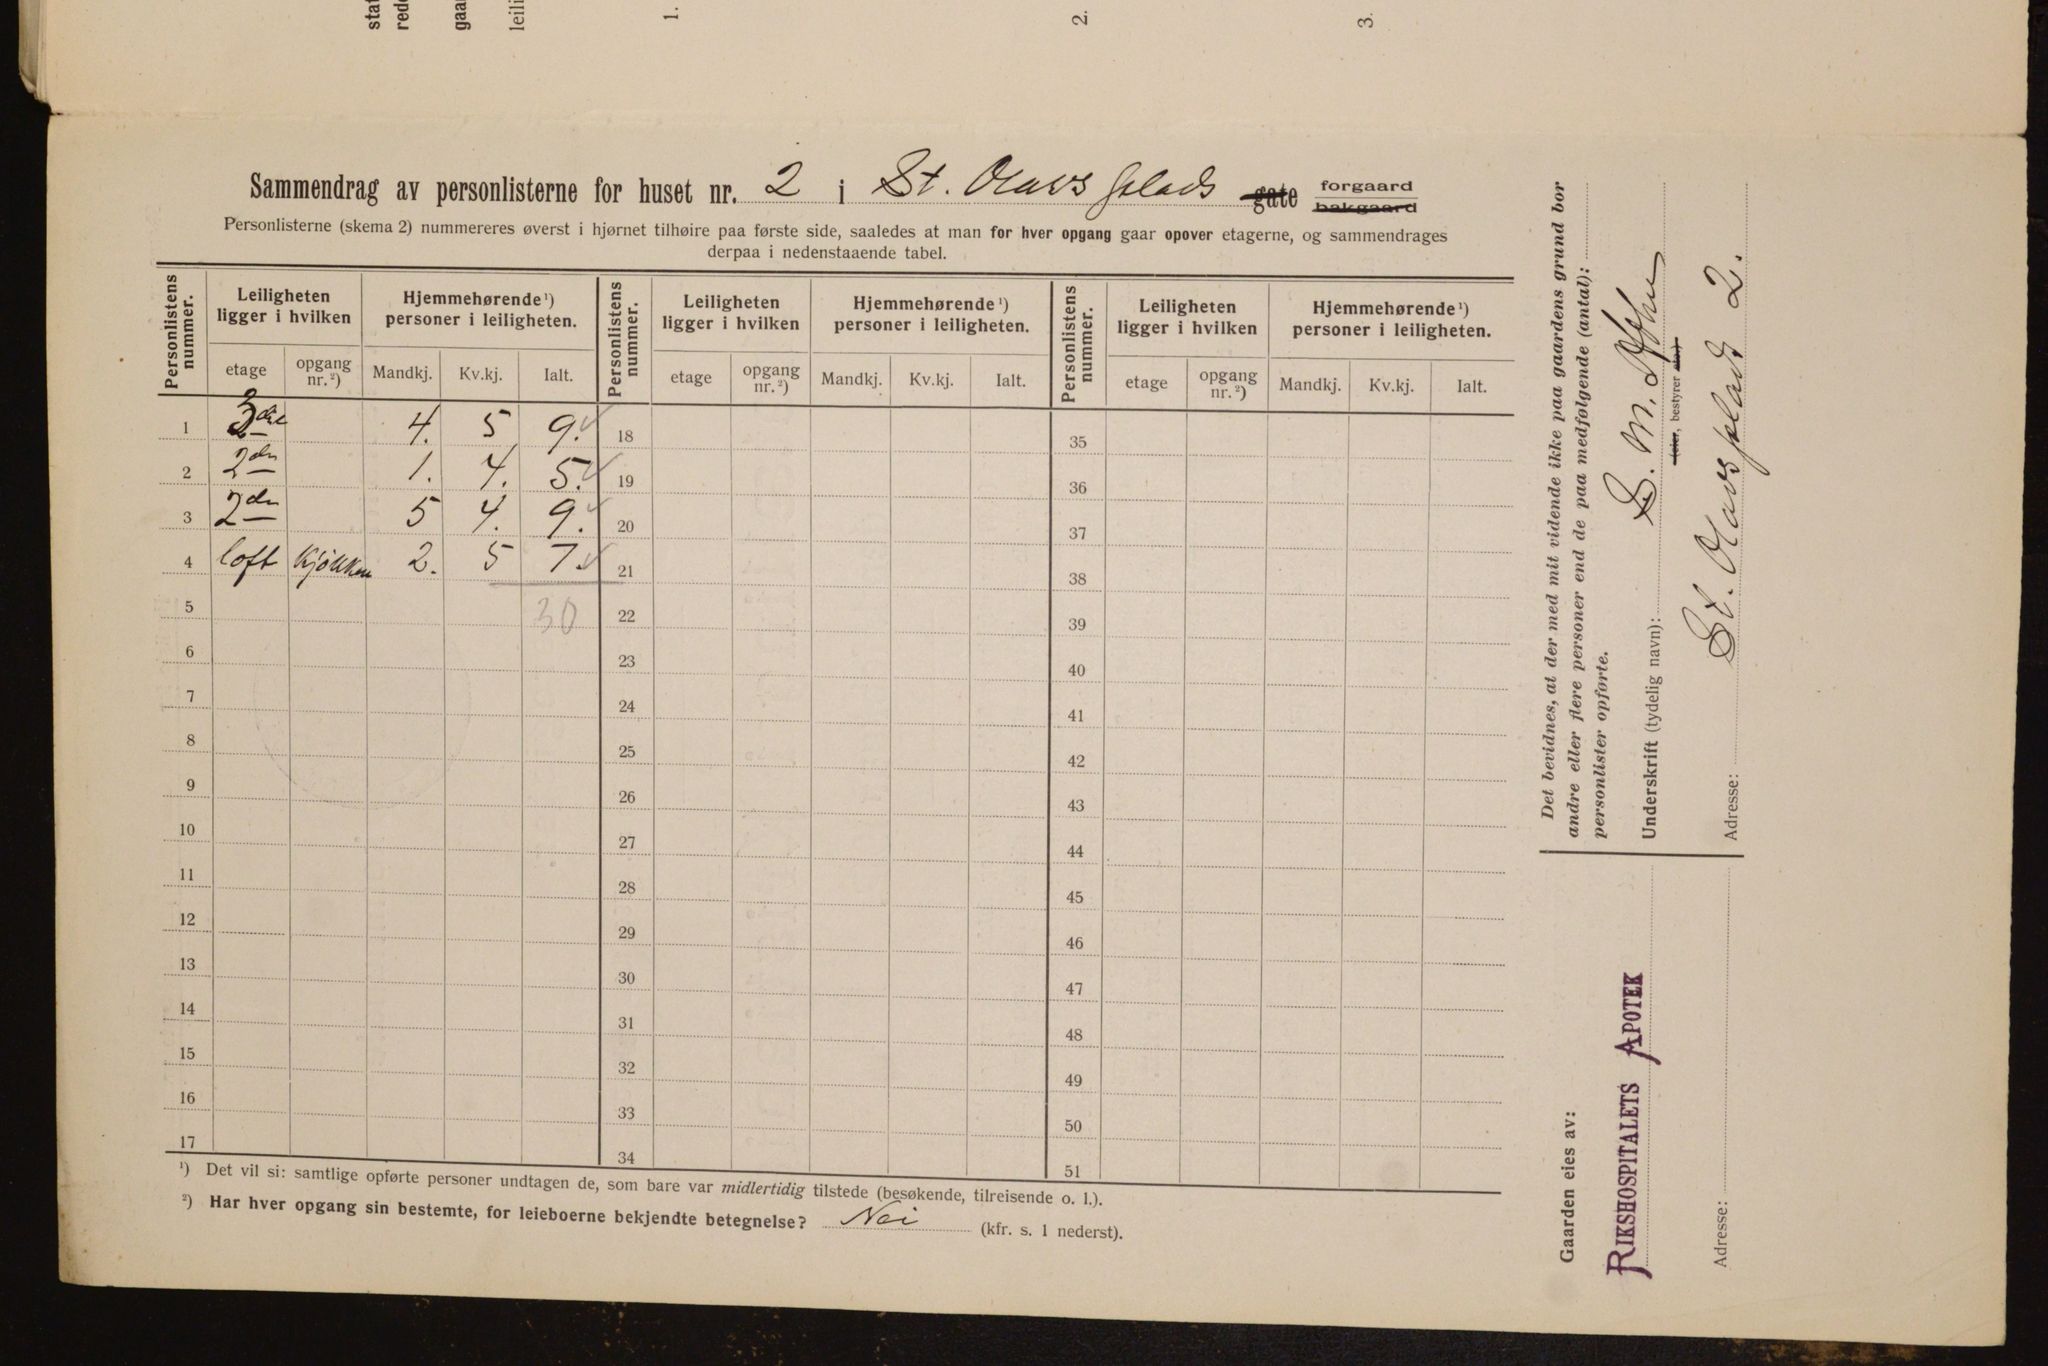 1.
2.
3.
Sammendrag av personlisterne for huset nr. 2 i St. Olavs plads gate forgaard bakgaard
Personlisterne (skema 2) nummereres øverst i hjørnet tilhøire paa første side, saaledes at man for hver opgang gaar opover etagerne, og sammendrages
derpaa i nedenstaaende tabel.
Personlistens nummer. Leiligheten ligger i hvilken Hjemmehørende ¹) personer i leiligheten. Personlistens nummer. Leiligheten ligger i hvilken Hjemmehørende ¹) personer i leiligheten. Personlistens nummer. Leiligheten ligger i hvilken Hjemmehørende ¹) personer i leiligheten.
etage opgang nr. ²) Mandkj. Kv.kj. Ialt. etage opgang nr. ²) Mandkj. Kv.kj. Ialt. etage opgang nr. ²) Mandkj. Kv.kj. Ialt.
1 3die 4. 5 9. 18 35
2 2den 1. 4. 5. 19 36
3 2den 5 4. 9. 20 37
4 loft Kjøkken 2. 5 7. 21 38
5 30 22 39
6 23 40
7 24 41
8 25 42
9 26 43
10 27 44
11 28 45
12 29 46
13 30 47
14 31 48
15 32 49
16 33 50
17 34 51
¹) Det vil si: samtlige opførte personer undtagen de, som bare var midlertidig tilstede (besøkende, tilreisende o. l.).
²) Har hver opgang sin bestemte, for leieboerne bekjendte betegnelse? Nei (kfr. s. 1 nederst).
Det bevidnes, at der med mit vidende ikke paa gaardens grund bor
andre eller flere personer end de paa medfølgende (antal):
personlister opførte.
Underskrift (tydelig navn): M.
(eier, bestyrer etc.)
Adresse: St. Olavs plads 2.
Gaarden eies av:
RIKSHOSPITALETS APOTEK
Adresse: